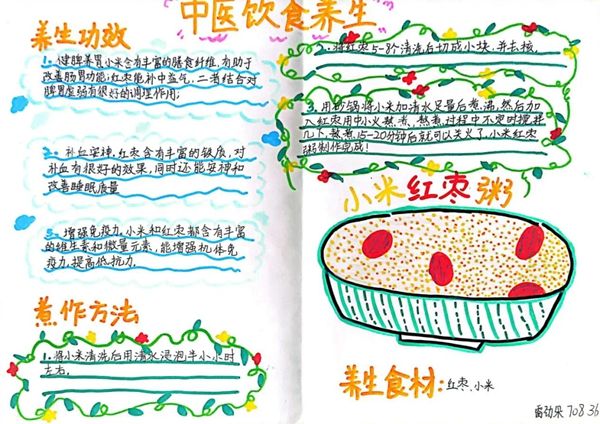 中医饮食养生
养生功效
1. 健脾养胃小米含有丰富的膳食纤维,有助于
改善肠胃功能;红枣能补中益气,二者结合对
脾胃虚弱有很好的调理作用;
2. 补血安神,红枣含有丰富的铁质,对
补血有很好的效果,同时还能安神和
改善睡眠质量
3. 增强免疫力,小米和红枣都含有丰富
的维生素和微量元素,能增强机体免
疫力,提高低抗力.
煮作方法
1. 将小米清洗后用清水浸泡半小小时
左右.
2. 将红枣5-8个清洗后切成小块,并去核.
3. 用砂锅将小米加清水足量后煮沸,然后加
入红枣用中小火熬煮,熬煮过程中不定时搅拌
几下,熬煮15-20分钟后就可以关火了,小米红枣
粥制作完成!
小米红枣粥
养生食材:红枣.小米
708.36